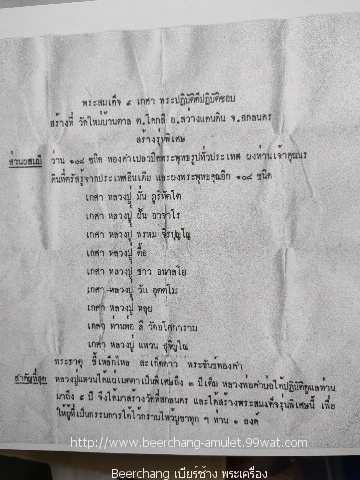 พระสมเด็จ ๙ เกศา พระปฏิบัติดีปฏิบัติชอบ
สร้างที่ วัดใหม่บ้านตาล ต.โคกสี อ.สว่างแดนดิน จ.สกลนคร
สร้างรุ่นพิเศษ
ส่วนผสมมี ว่าน ๑๐๘ ชนิด ทองคำเปลวปิดพระพุทธรูปทั่วประเทศ ผงท่านเจ้าคุณนร
ดินที่ตรัสรู้จากประเทศอินเดีย และผงพระพุทธคุณอีก ๑๐๘ ชนิด
เกศา หลวงปู่ มั่น ภูริทัตโต
เกศา หลวงปู่ ฝั้น อาจาโร
เกศา หลวงปู่ พรหม จิรปุญโญ
เกศา หลวงปู่ ตื้อ
เกศา หลวงปู่ ขาว อนาลโย
เกศา หลวงปู่ วัน อุตตโม
เกศา หลวงปู่ หลุย
เกศา ท่านพ่อ ลี วัดอโศการาม
เกศา หลวงปู่ แหวน สุจิณโณ
พระธาตุ ขี้เหล็กไหล สะเก็ดดาว พระชันรทองคำ
สำคัญที่สุด หลวงปู่แหวนได้แผ่เมตตาเป็นพิเศษถึง ๓ ปีเต็ม หลวงพ่อคำบ่อได้ปฏิบัติดูแลท่าน
มาถึง ๕ ปี จึงได้มาสร้างวัดที่สกลนคร และได้สร้างพระสมเด็จรุ่นพิเศษนี้ เพื่อ
ให้ผู้ที่เป็นกรรมการได้ไว้กราบไหว้บูชาทุก ๆ ท่าน ๑ องค์
http://www.beerchang-amulet.99wat.com
Beerchang เบียร์ช้าง พระเครื่อง